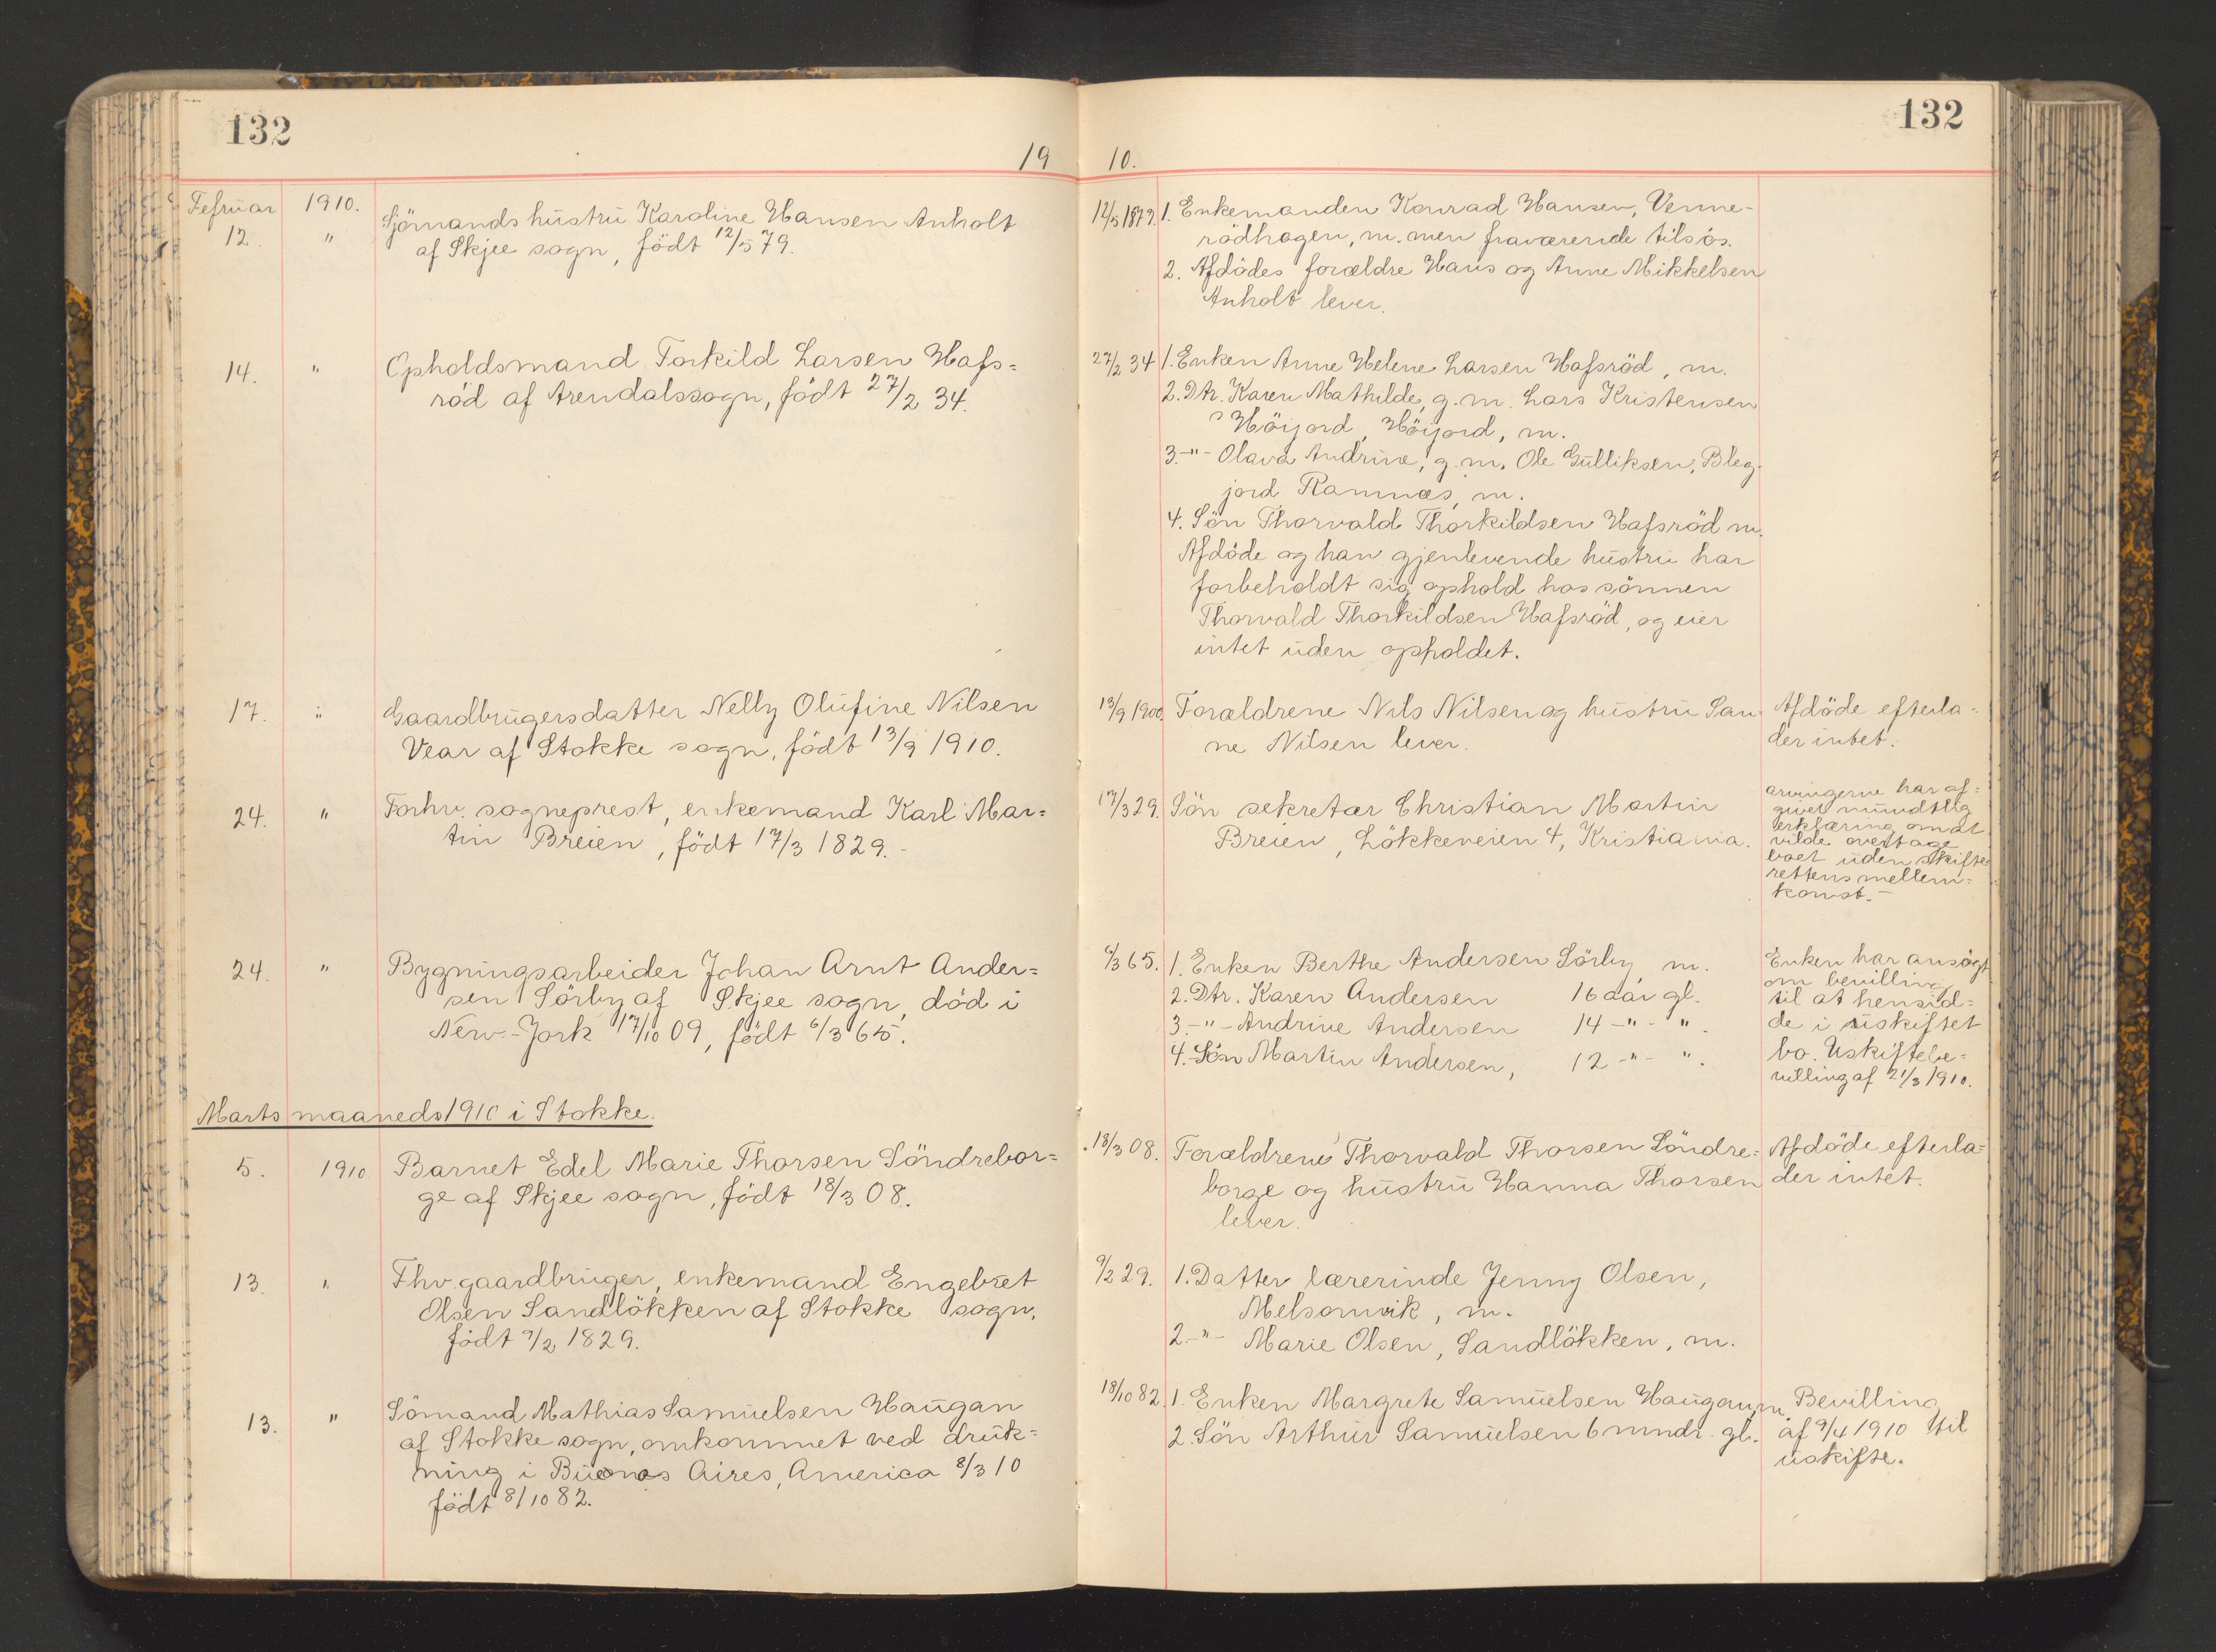 132
19
Februar 1910.
12. "
Sjömands hustru Karoline Hansen Anholt
af Skjee sogn, födt 12/5 79.
14. "
Opholdsmand Torkild Larsen Hafs=
röd af Arendalssogn, födt 27/2 34.
17. "
Gaardbrugersdatter Nelly Olufine Nilsen
Vear af Stokke sogn, födt 13/9 1910.
24. "
Forhv. sogneprest, enkemand Karl Mar=
tin Breien, födt 17/3 1829.-
24. "
Bygningsarbeider Johan Arnt Ander=
sen Sörby af Skjee sogn, död i
New-York 17/10 09, födt 6/3 65.
Marts maaneds 1910 i Stokke.
5. 1910
Barnet Edel Marie Thorsen Söndrebor=
ge af Skjee sogn, födt 18/3 08.
13. "
Fhv gaardbruger, enkemand Engebret
Olsen Sandlökken af Stokke sogn,
födt 9/2 1829.
13. "
Sömand Mathias Samuelsen Haugan
af Stokke sogn, omkommet ved druk=
ning i Buenos Aires, America 8/3 10
födt 8/10 82.
132
10.
12/5 1879. 1. Enkemanden Konrad Hansen, Venne-
rödhagen, m. men fraværende tilsjös.
2. Afdödes forældre Hans og Anne Mikkelsen
Anholt lever.
27/2 34 1. Enken Anne Helene Larsen Hafsröd, m.
2. Dtr. Karen Mathilde, g.m. Lars Kristensen
Höijord, Höijord, m.
3. -"- Olava Andrine, g.m. Ole Gulliksen, Bleg-
jord Ramnæs, m.
4. Sön Thorvald Thorkildsen Hafsröd m.
Afdöde og han gjenlevende hustru har
forbeholdt sig ophold hos sönnen
Thorvald Thorkildsen Hafsröd, og eier
intet uden opholdet.
13/9 1900. Forældrene Nils Nilsen og hustru San-
ne Nilsen lever.
Afdöde efterla=
der intet.
17/3 29. Sön sekretær Christian Martin
Breien, Lökkeveien 4, Kristiania.
arvingerne har af=
givet mundtlig
erklæring om at
vilde overtage
boet uden skifte
rettens mellem=
komst.-
6/3 65. 1. Enken Berthe Andersen Sörby, m.
2. Dtr. Karen Andersen 16 aar gl.
3. -"- Andrine Andersen 14 -"- ".
4. Sön Martin Andersen, 12 -"- ".
Enken har ansögt
om bevilling
til at hensid=
de i uskiftet
bo. Uskiftebe=
villing af 21/3 1910.
18/3 08. Forældrene Thorvald Thorsen Söndre=
borge og hustru Hanna Thorsen
lever.
Afdöde efterla=
der intet.
9/2 29. 1. Datter lærerinde Jenny Olsen,
Melsomvik, m.
2. -"- Marie Olsen, Sandlökken, m.
18/10 82. 1. Enken Margrete Samuelsen Haugan, m.
2. Sön Arthur Samuelsen 6 mndr. gl.
Bevilling
af 9/4 1910 til
uskifte.